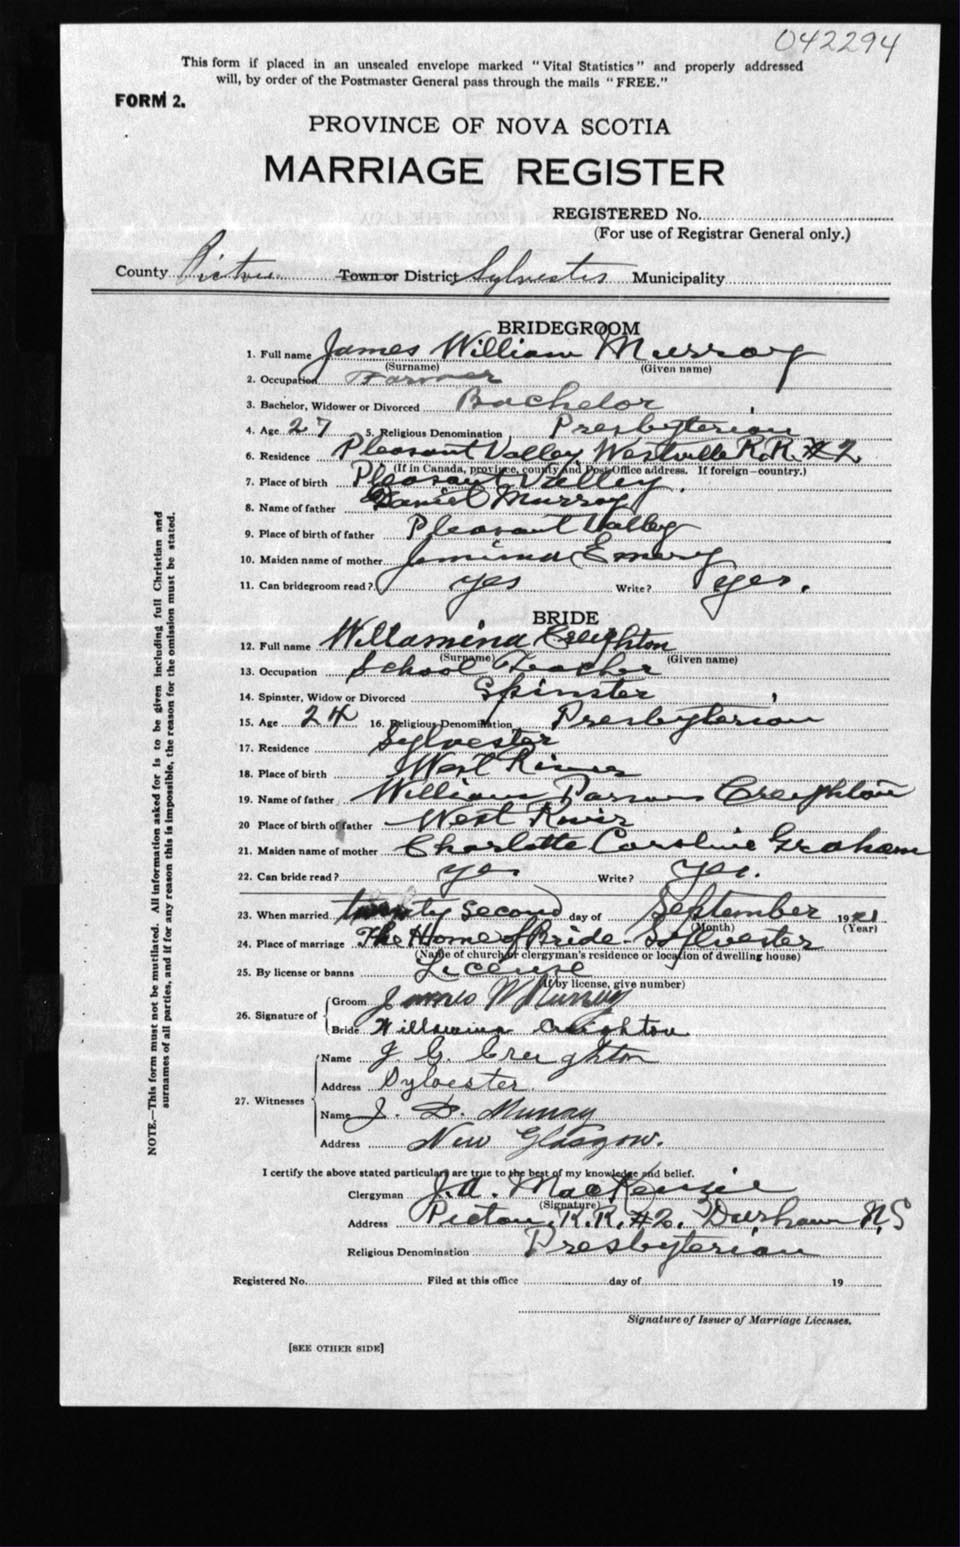 042294
This form if placed in an unsealed envelope marked "Vital Statistics" and properly addressed
will, by order of the Postmaster General pass through the mails "FREE."
FORM 2.
PROVINCE OF NOVA SCOTIA
MARRIAGE REGISTER
REGISTERED No.
(For use of Registrar General only.)
County Pictou Town or District Sylvester Municipality
BRIDEGROOM
1. Full name James William Murray
(Surname) (Given name)
2. Occupation Farmer
3. Bachelor, Widower or Divorced Bachelor
4. Age 27 5. Religious Denomination Presbyterian
6. Residence Pleasant Valley Westville R.R. #2
(If in Canada, province, county and Post Office address. If foreign—country.)
7. Place of birth Pleasant Valley.
8. Name of father Daniel Murray
9. Place of birth of father Pleasant Valley
10. Maiden name of mother Jemima Emery
11. Can bridegroom read? yes Write? yes.
BRIDE
12. Full name Willamina Creighton
(Surname) (Given name)
13. Occupation School Teacher
14. Spinster, Widow or Divorced Spinster
15. Age 24 16. Religious Denomination Presbyterian
17. Residence Sylvester
18. Place of birth West River
19. Name of father William Parsons Creighton
20 Place of birth of father West River
21. Maiden name of mother Charlotte Caroline Graham
22. Can bride read? yes Write? yes.
23. When married twenty second day of September 1921
(Month) (Year)
24. Place of marriage The Home of Bride - Sylvester
(Name of church or clergyman's residence or location of dwelling house)
25. By license or banns License
(If by license, give number)
26. Signature of Groom James W Murray
Bride Willamina Creighton
27. Witnesses Name J. G. Creighton
Address Sylvester.
Name J. D. Murray
Address New Glasgow.
I certify the above stated particulars are true to the best of my knowledge and belief.
Clergyman J. A. MacKenzie
(Signature)
Address Pictou, R.R. #2. Durham N.S
Religious Denomination Presbyterian
Registered No. Filed at this office day of 19
Signature of Issuer of Marriage Licenses.
[SEE OTHER SIDE]
NOTE.—This form must not be mutilated. All information asked for is to be given including full Christian and
surnames of all parties, and if for any reason this is impossible, the reason for the omission must be stated.